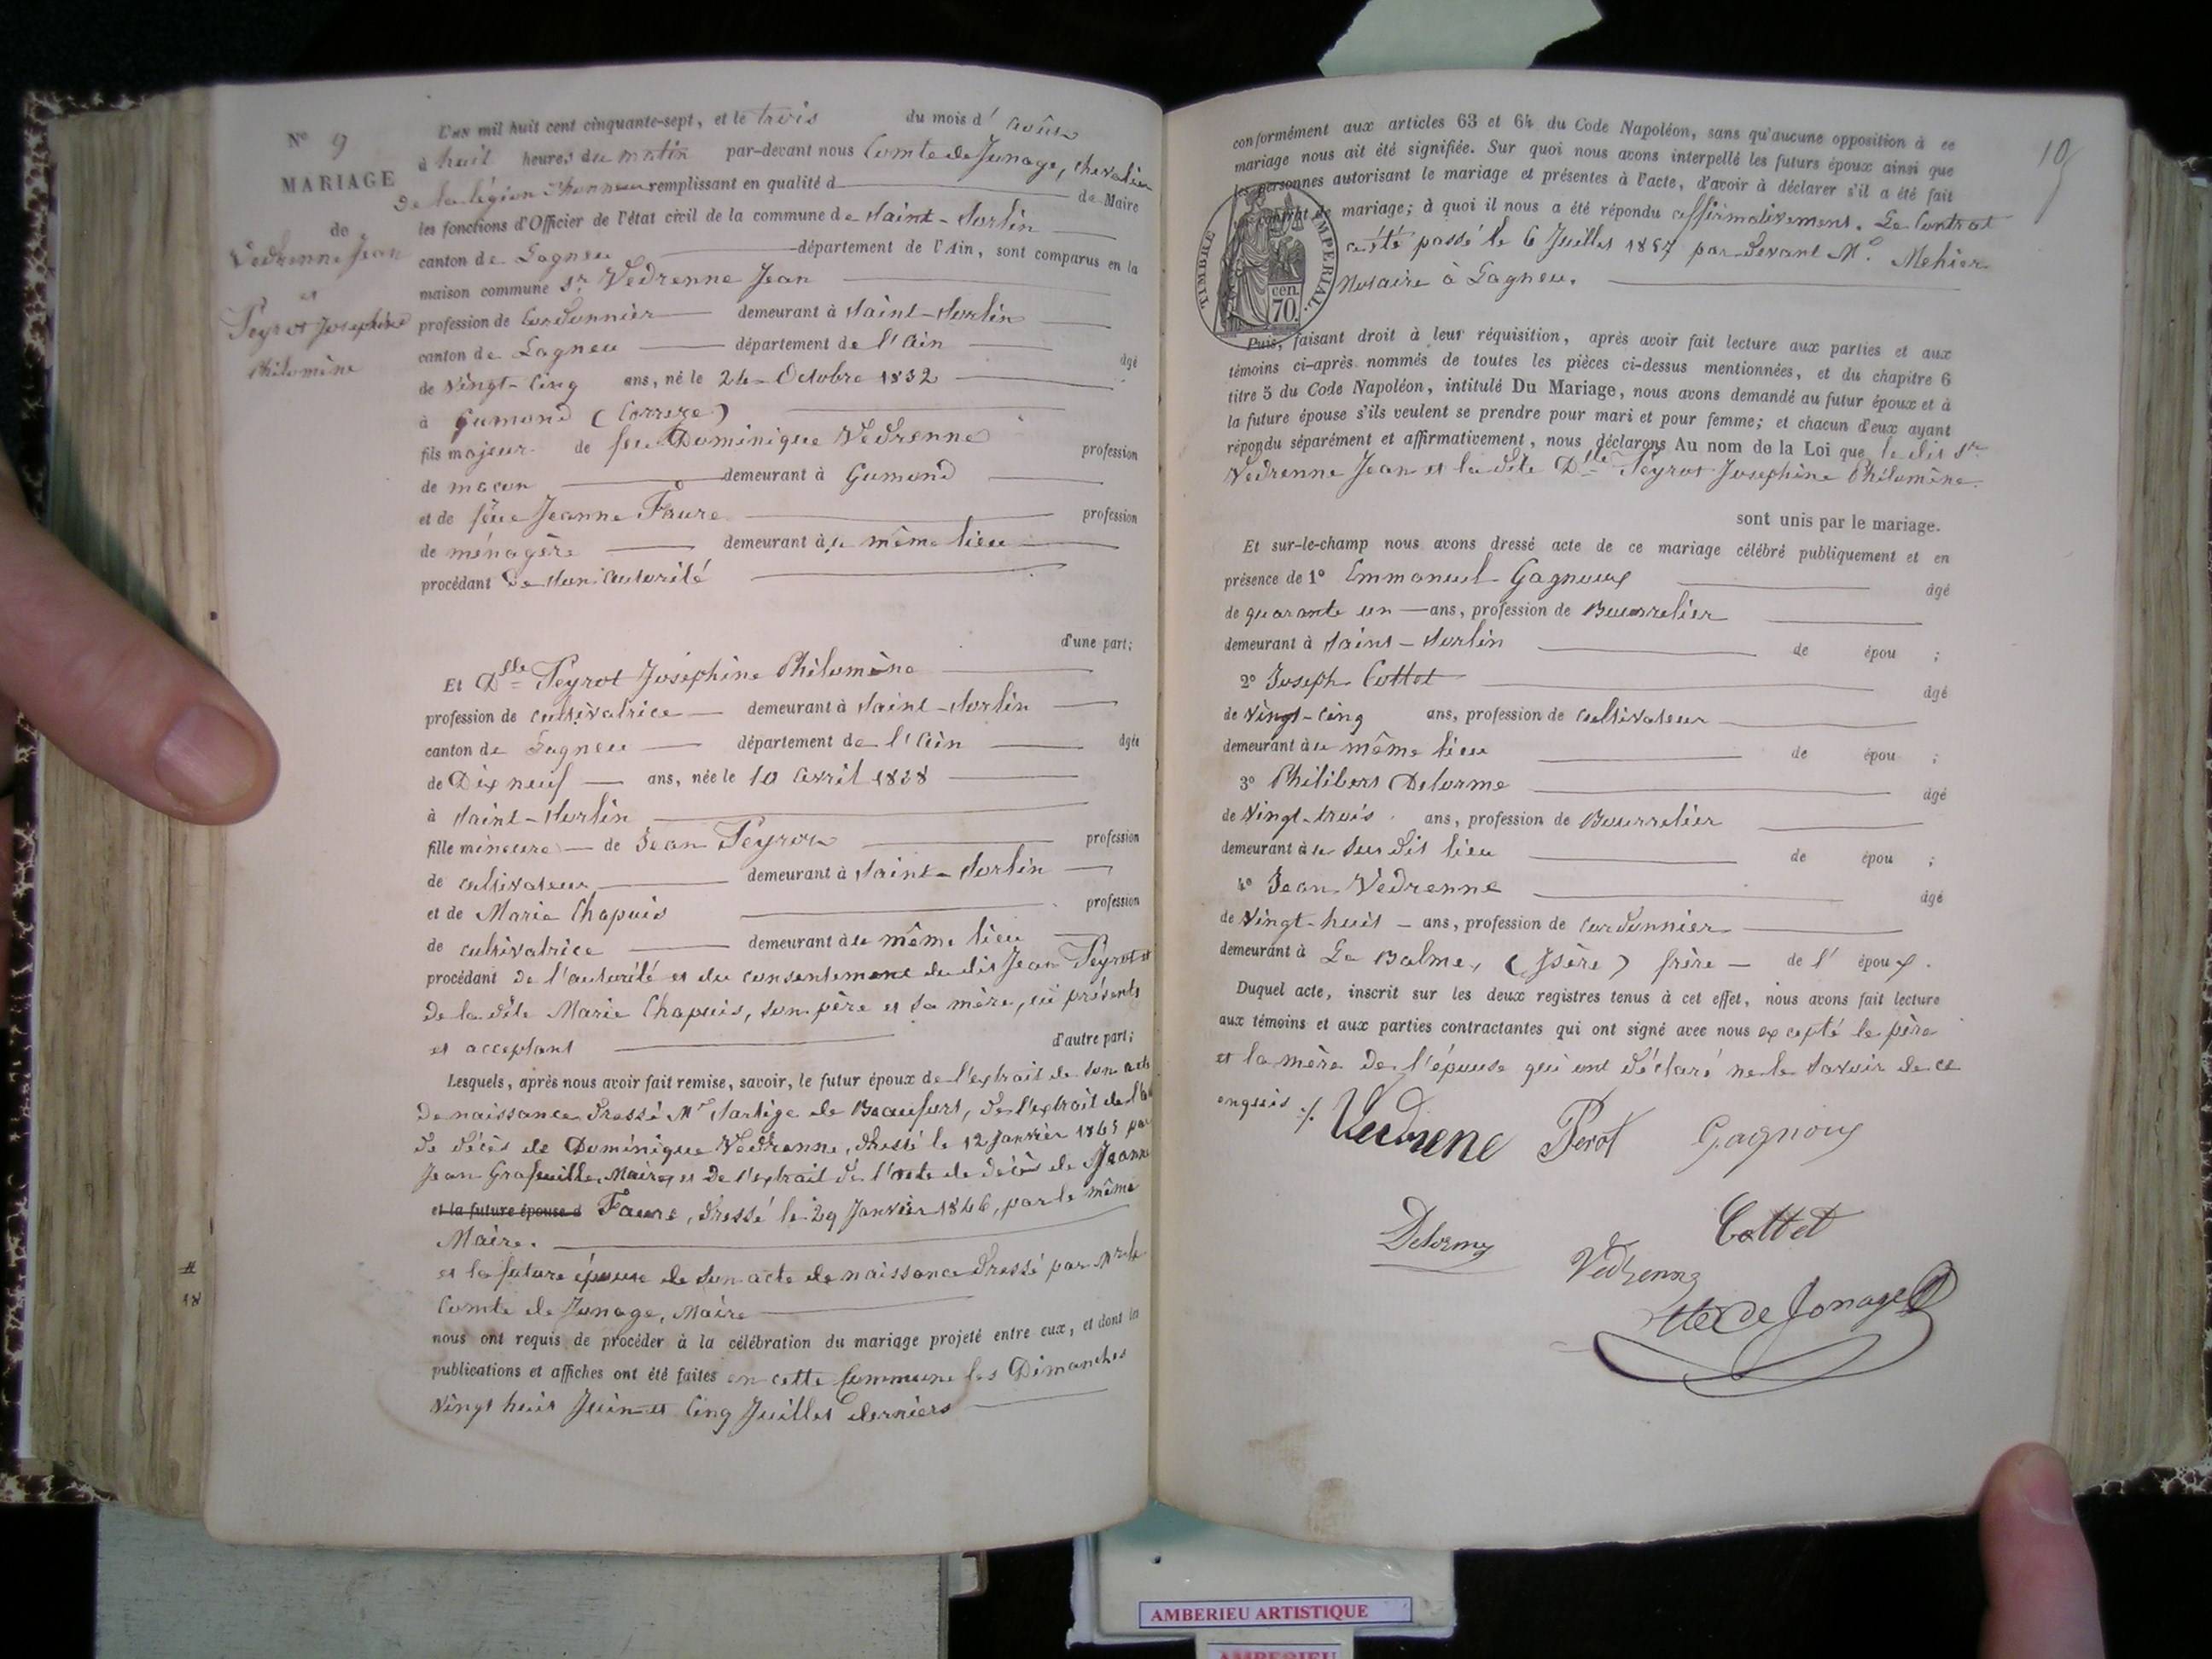 N° 9
MARIAGE
de
Vedrenne Jean
et
Peyrot Josephine
Philomène
L'an mil huit cent cinquante-sept, et le trois du mois d'Août
à huit heures du matin par-devant nous Comte de Jonage, Chevalier
de la légion d'honneur remplissant en qualité d de Maire
les fonctions d'Officier de l'état civil de la commune de Saint-Sorlin
canton de Lagneu département de l'Ain, sont comparus en la
maison commune Sr Vedrenne Jean
profession de Cordonnier demeurant à Saint-Sorlin
canton de Lagneu département de l'Ain âgé
de Vingt-Cinq ans, né le 24 Octobre 1832
à Gumond (Corrèze)
fils majeur de feu Dominique Vedrenne profession
de maçon demeurant à Gumond
et de feüe Jeanne Faure profession
de ménagère demeurant au même lieu
procédant de son autorité
d'une part;
Et Dlle Peyrot Joséphine Philomène
profession de cultivatrice demeurant à Saint-Sorlin
canton de Lagneu département de l'Ain âgée
de Dix neuf ans, née le 10 Avril 1838
à Saint-Sorlin
fille mineure de Jean Peyrot profession
de cultivateur demeurant à Saint-Sorlin
et de Marie Chapuis profession
de cultivatrice demeurant au même lieu
procédant de l'autorité et du consentement du dit Jean Peyrot et
de la dite Marie Chapuis, son père et sa mère, ici présents
et acceptant d'autre part;
Lesquels, après nous avoir fait remise, savoir, le futur époux de l'extrait de son acte
de naissance dressé Mr Sartige de Beaufort, de l'extrait de l'acte
de décès de Dominique Vedrenne, dressé le 12 Janvier 1845 par
Jean Grafeuille, Maire, et de l'extrait de l'acte de décès de Jeanne
et la future épouse d Faure, dressé le 29 Janvier 1846, par le même
Maire.
et la future épouse de son acte de naissance dressé par Mr le
Comte de Jonage, Maire
nous ont requis de procéder à la célébration du mariage projeté entre eux, et dont les
publications et affiches ont été faites en cette Commune les Dimanches
Vingt huit Juin et Cinq Juillet derniers
10
conformément aux articles 63 et 64 du Code Napoléon, sans qu'aucune opposition à ce
mariage nous ait été signifiée. Sur quoi nous avons interpellé les futurs époux ainsi que
les personnes autorisant le mariage et présentes à l'acte, d'avoir à déclarer s'il a été fait
contrat de mariage; à quoi il nous a été répondu affirmativement. Le Contrat
a été passé le 6 Juillet 1857 par devant Me Mehier
Notaire à Lagneu.
TIMBRE IMPERIAL
cen.
70.
Puis, faisant droit à leur réquisition, après avoir fait lecture aux parties et aux
témoins ci-après nommés de toutes les pièces ci-dessus mentionnées, et du chapitre 6
titre 5 du Code Napoléon, intitulé Du Mariage, nous avons demandé au futur époux et à
la future épouse s'ils veulent se prendre pour mari et pour femme; et chacun d'eux ayant
répondu séparément et affirmativement, nous déclarons Au nom de la Loi que le dit Sr
Vedrenne Jean et la dite Dlle Peyrot Josephine Philomène.
sont unis par le mariage.
Et sur-le-champ nous avons dressé acte de ce mariage célébré publiquement et en
présence de 1° Emmanuel Gagnoux âgé
de quarante un ans, profession de Bourrelier
demeurant à Saint-Sorlin de épou ;
2° Joseph Cottet âgé
de Vingt-Cinq ans, profession de cultivateur
demeurant au même lieu de épou ;
3° Philibert Delorme âgé
de Vingt-trois ans, profession de Bourrelier
demeurant au sus dit lieu de épou ;
4° Jean Vedrenne âgé
de Vingt-huit ans, profession de Cordonnier
demeurant à La Balme, (Isère) frère de l'époux.
Duquel acte, inscrit sur les deux registres tenus à cet effet, nous avons fait lecture
aux témoins et aux parties contractantes qui ont signé avec nous excepté le père
et la mère de l'épouse qui ont déclaré ne le savoir de ce
enquis ./.
Vedrene Perot Gagnoux
Delorme Vedrenne Cottet
Cte de Jonage
AMBERIEU ARTISTIQUE
AMBERIEU